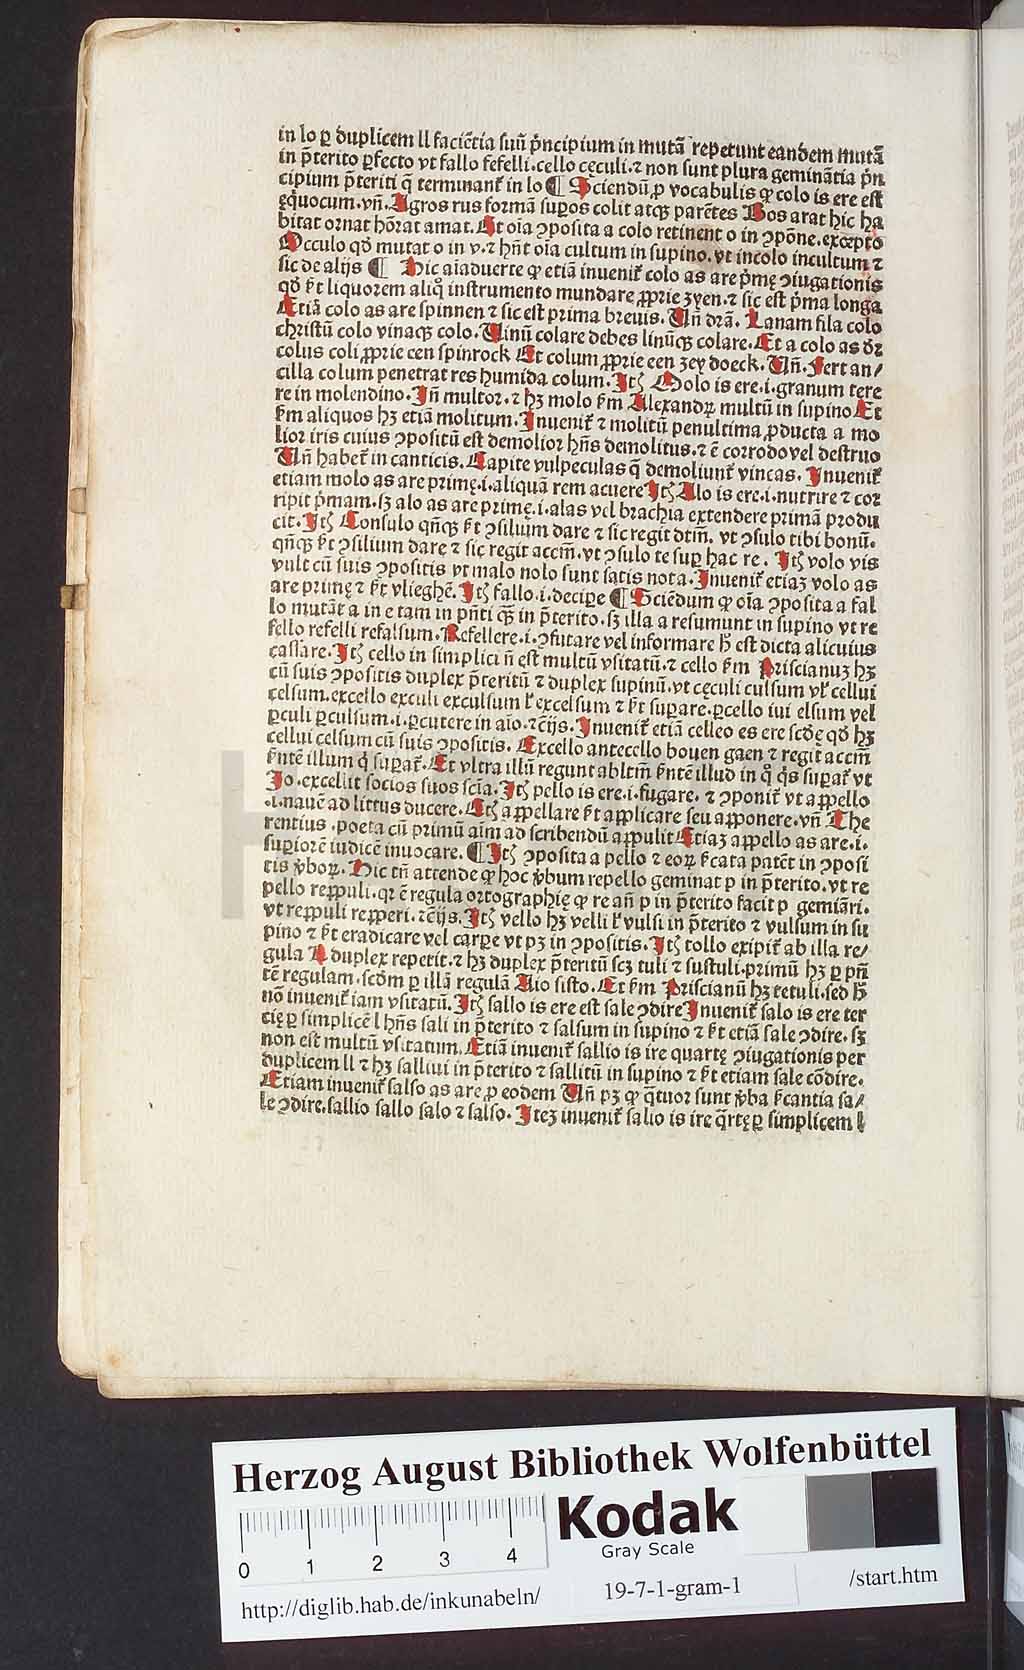 in lo ꝑ duplicem ll faciẽtia suũ p̃ncipium in mutã repetunt eandem mutã
in p̃terito ꝑfecto vt fallo fefelli.cello cęculi.⁊ non sunt plura geminãtia p̃n
cipium p̃teriti q̃ terminant᷑ in lo ¶ Sciendũ ꝓ vocabulis ꝙ colo is ere est
ęquocum.vñ. Agros rus formã suꝑos colit atqꝫ parẽtes Bos arat hic ha
bitat ornat hõrat amat. Et oĩa ↄposita a colo retinent o in ↄpõne.excepto
Occulo qđ mutat o in v.⁊ hñt oĩa cultum in supino. vt incolo incultum ⁊
sic de alijs ¶ Hic aĩaduerte ꝙ etiã inuenit᷑ colo as are p̃mę ↄiugationis
qđ s̃t liquorem aliq̊ instrumento mundare ꝓprie zyen.⁊ sic est p̃ma longa
Etiã colo as are spinnen ⁊ sic est prima breuis. Vñ dr̃ã. Lanam fila colo
christũ colo vinaqꝫ colo. Uinũ colare debes linũqꝫ colare. Et a colo as dr̃
colus coli ꝓprie een spinrock Et colum ꝓprie een zey doeck. Vñ. Fert an/
cilla colum penetrat res humida colum. Itꝫ Molo is ere.i.granum tere
re in molendino. Iñ multor.⁊ hꝫ molo s̃m Alexandꝝ multũ in supino Et
s̃m aliquos hꝫ etiã molitum. Inuenit᷑ ⁊ molitũ penultima ꝓducta a mo
lior iris cuius ↄpositũ est demolior hñs demolitus.⁊ ẽ corrodo vel destruo
Vñ habet᷑ in canticis. Capite vulpeculas q̃ demoliunt᷑ vineas. Inuenit᷑
etiam molo as are primę.i.aliquã rem acuere Itꝫ Alo is ere.i.nutrire ⁊ cor
ripit p̃mam.sꝫ alo as are primę.i.alas vel brachia extendere primã produ
cit. Itꝫ Consulo qñqꝫ s̃t ↄsilium dare ⁊ sic regit dtm̃. vt ↄsulo tibi bonũ.
qñqꝫ s̃t ↄsilium dare ⁊ sic regit accm̃.vt ↄsulo te suꝑ hac re. Itꝫ volo vis
vult cũ suis ↄpositis vt malo nolo sunt satis nota. Inuenit᷑ etiaꝫ volo as
are primę ⁊ s̃t vlieghẽ. Itꝫ fallo.i.decipe ¶ Sciẽdum ꝙ oĩa ↄposita a fal
lo mutãt a in e tam in pñti qꝫ in p̃terito.sꝫ illa a resumunt in supino vt re
fello refelli refalsum. Refellere.i.ↄfutare vel informare h̃ est dicta alicuius
cassare. Itꝫ cello in simplici ñ est multũ vsitatũ.⁊ cello s̃m Priscianuꝫ hꝫ
cũ suis ↄpositis duplex p̃teritũ ⁊ duplex supinũ.vt cęculi culsum vl̃ cellui
celsum.excello exculi exculsum l̃ excelsum ⁊ s̃t suꝑare.ꝑcello lui elsum vel
ꝑculi ꝑculsum.i.ꝑcutere in aĩo.⁊cẽijs. Inuenit᷑ etiã celleo es ere scđę qđ hꝫ
cellui celsum cũ suis ↄpositis. Excello antecello bouen gaen ⁊ regit accm̃
s̃ntẽ illum q̇ suꝑat᷑. Et vltra illũ regunt abltm̃ s̃ntẽ illud in q̊ q̇s suꝑat᷑ vt
Io.excellit socios suos scĩa. Itꝫ pello is ere.i.fugare. ⁊ ↄponit᷑ vt appello
.i.nauẽ ad littus ducere. Etꝫ appellare s̃t applicare seu apponere.vñ The
rentius.poeta cũ primũ aĩm ad scribendũ appulit Etiaꝫ appello as are.i.
suꝑiorẽ iudicẽ inuocare. ¶ Itꝫ ↄposita a pello ⁊ eoꝝ s̃cata patẽt in ↄposi
tis ṽboꝝ. Hic tñ attende ꝙ hoc ṽbum repello geminat p in p̃terito.vt re
pello reppuli.qꝛ ẽ regula ortographię ꝙ re añ p in p̃terito facit p gemiãri.
vt reppuli repperi.⁊cẽijs. Itꝫ vello hꝫ velli l̃ vulsi in p̃terito ⁊ vulsum in su
pino ⁊ s̃t eradicare vel carꝑe vt pꝫ in ↄpositis. Itꝫ tollo exipit᷑ ab illa re/
gula A duplex repetit.⁊ hꝫ duplex p̃teritũ scꝫ tuli ⁊ sustuli.primũ hꝫ ꝑ pñ
tẽ regulam.scđm ꝑ illã regulã Aio sisto. Et s̃m Priscianũ hꝫ tetuli.sed h̃
nõ inuenit᷑ iam vsitatũ. Itꝫ sallo is ere est sale ↄdire Inuenit᷑ salo is ere ter
cię ꝑ simplicẽ l hñs sali in p̃terito ⁊ salsum in supino ⁊ s̃t etiã sale ↄdire.sꝫ
non est multũ vsitatum. Etiã inuenit᷑ sallio is ire quartę ↄiugationis per
duplicem ll ⁊ hꝫ salliui in p̃terito ⁊ sallitũ in supino ⁊ s̃t etiam sale cõdire.
Etiam inuenit᷑ salso as are.ꝑ eodem Vñ pꝫ ꝙ q̃tuor sunt ṽba s̃cantia sa/
le ↄdire.sallio sallo salo ⁊ salso. Iteꝫ inuenit᷑ salio is ire q̃rtę ꝑ simplicem l
HAB
Herzog August Bibliothek Wolfenbüttel
Kodak
Gray Scale
0 1 2 3 4
http://diglib.hab.de/inkunabeln/ 19-7-1-gram-1 /start.htm